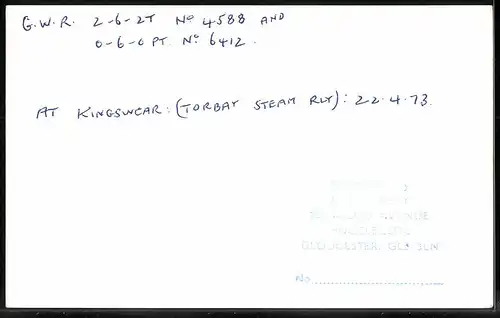 G.W.R. 2-6-2T No 4588 AND
0-6-0 PT. No. 6412.
AT KINGSWEAR: (TORBAY STEAM RLY): 22.4.73.
GLOUCESTER, GL3 3LN
No.